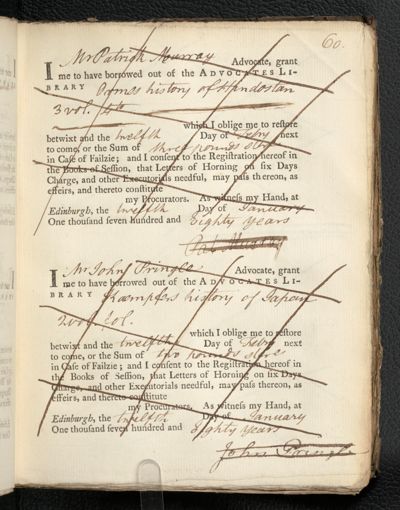 60.
I Mr Patrick Murray Advocate, grant
me to have borrowed out of the ADVOCATES LI-
BRARY Ormes history of Hindostan
3 vol. 4to
which I oblige me to reſtore
betwixt and the twelfth Day of Febry next
to come, or the Sum of three pounds ster
in Caſe of Failzie; and I conſent to the Regiſtration hereof in
the Books of Seſſion, that Letters of Horning on ſix Days
Charge, and other Executorials needful, may paſs thereon, as
effeirs, and thereto conſtitute
my Procurators. As witneſs my Hand, at
Edinburgh, the twelfth Day of January
One thouſand ſeven hundred and Eighty years
Pat. Murray
I Mr John Pringle Advocate, grant
me to have borrowed out of the ADVOCATES LI-
BRARY Kæmpfers history of Japan
2 vol. fol.
which I oblige me to reſtore
betwixt and the twelfth Day of Febry next
to come, or the Sum of two pounds ster
in Caſe of Failzie; and I conſent to the Regiſtration hereof in
the Books of Seſſion, that Letters of Horning on ſix Days
Charge, and other Executorials needful, may paſs thereon, as
effeirs, and thereto conſtitute
my Procurators. As witneſs my Hand, at
Edinburgh, the twelfth Day of January
One thouſand ſeven hundred and Eighty years
John Pringle